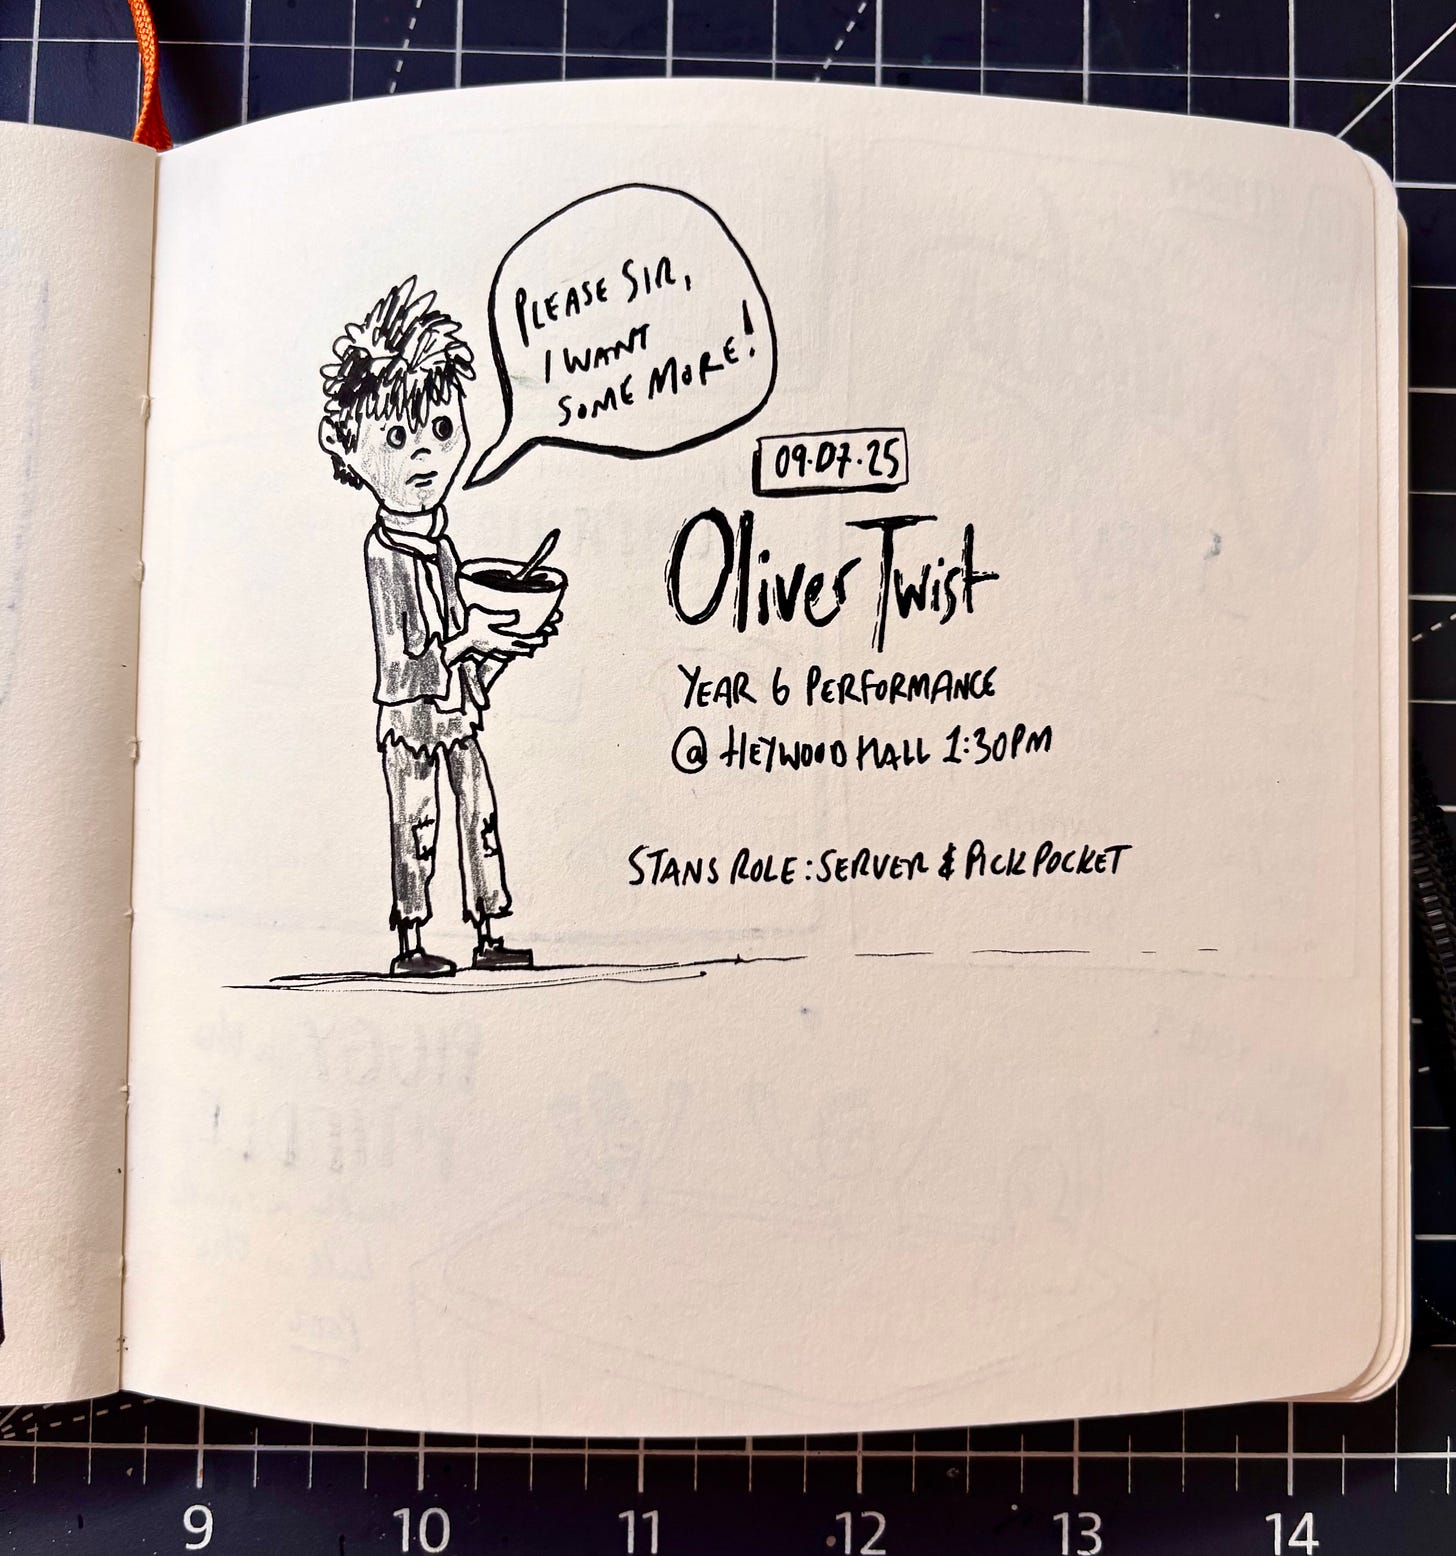 PLEASE SIR,
I WANT
SOME MORE!
09.07.25
Oliver Twist
YEAR 6 PERFORMANCE
@ HEYWOOD HALL 1:30PM
STANS ROLE: SERVER & PICKPOCKET
9 10 11 12 13 14